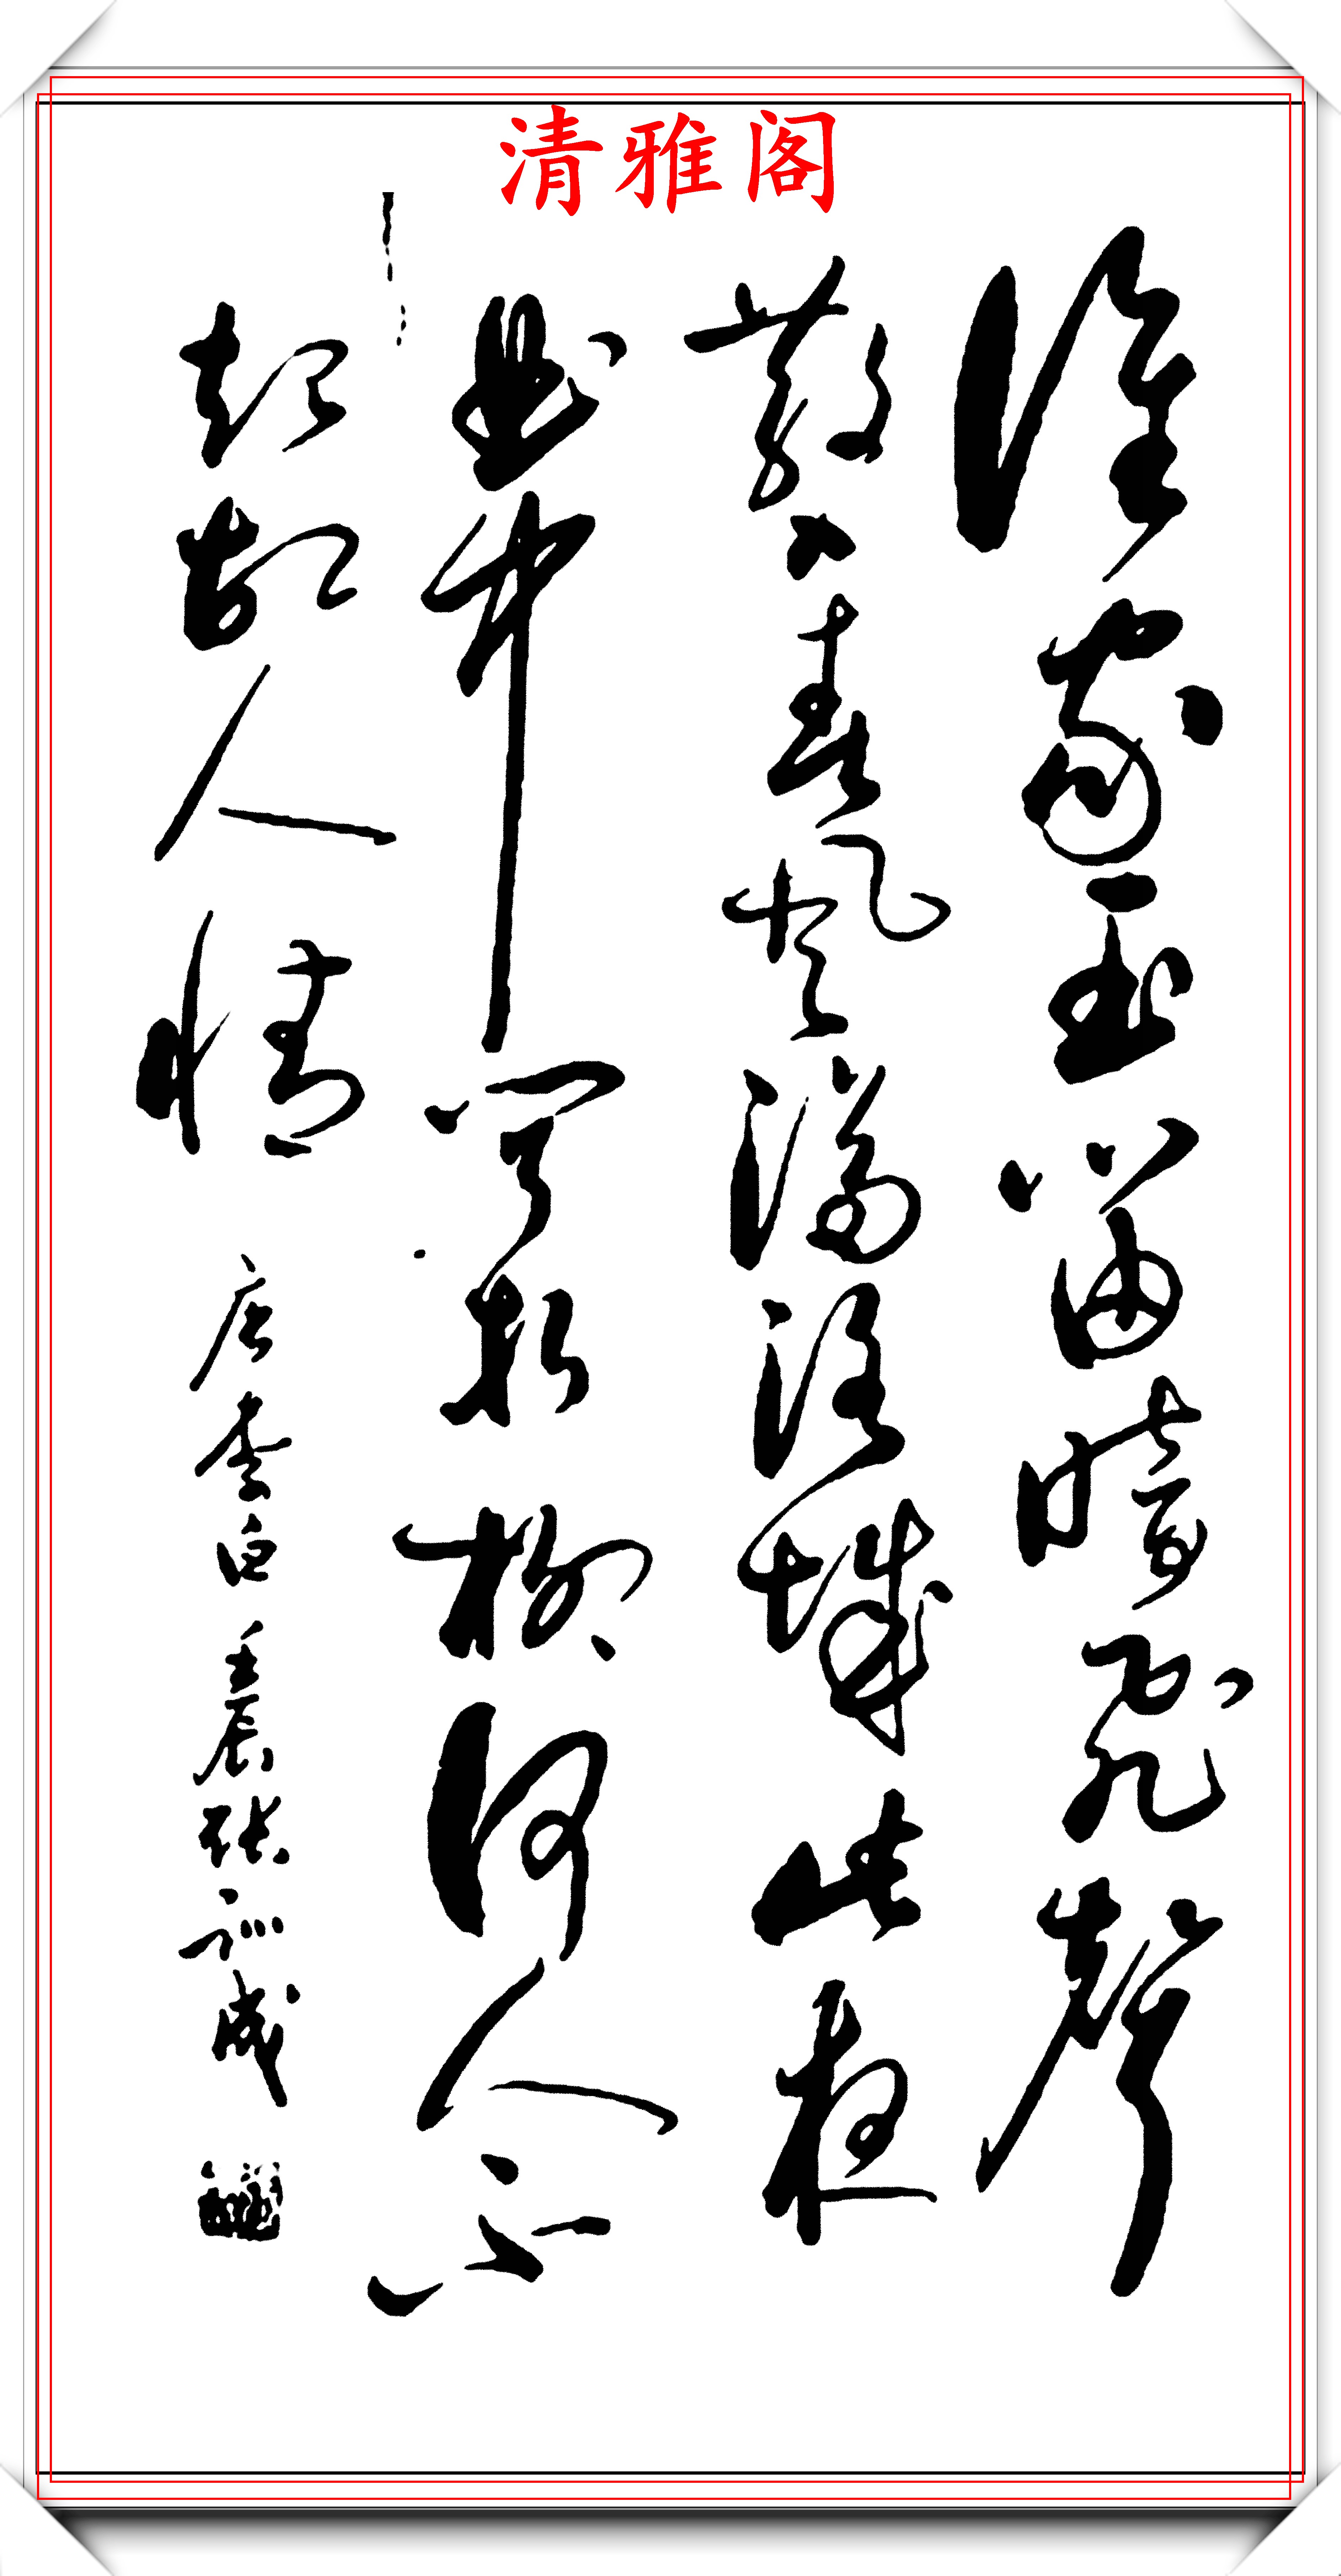 清雅阁
谁家玉笛暗飞聲
散入春风满洛城此夜
曲中闻折柳何人不
起故人情
唐李白 壬辰 张训成